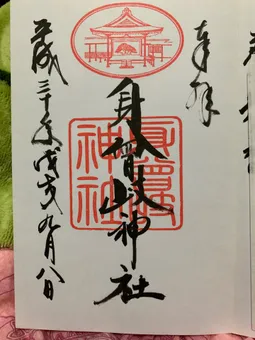 奉拝
身曾岐神社
身曾岐
神社
平成三十年戊戌九月八日